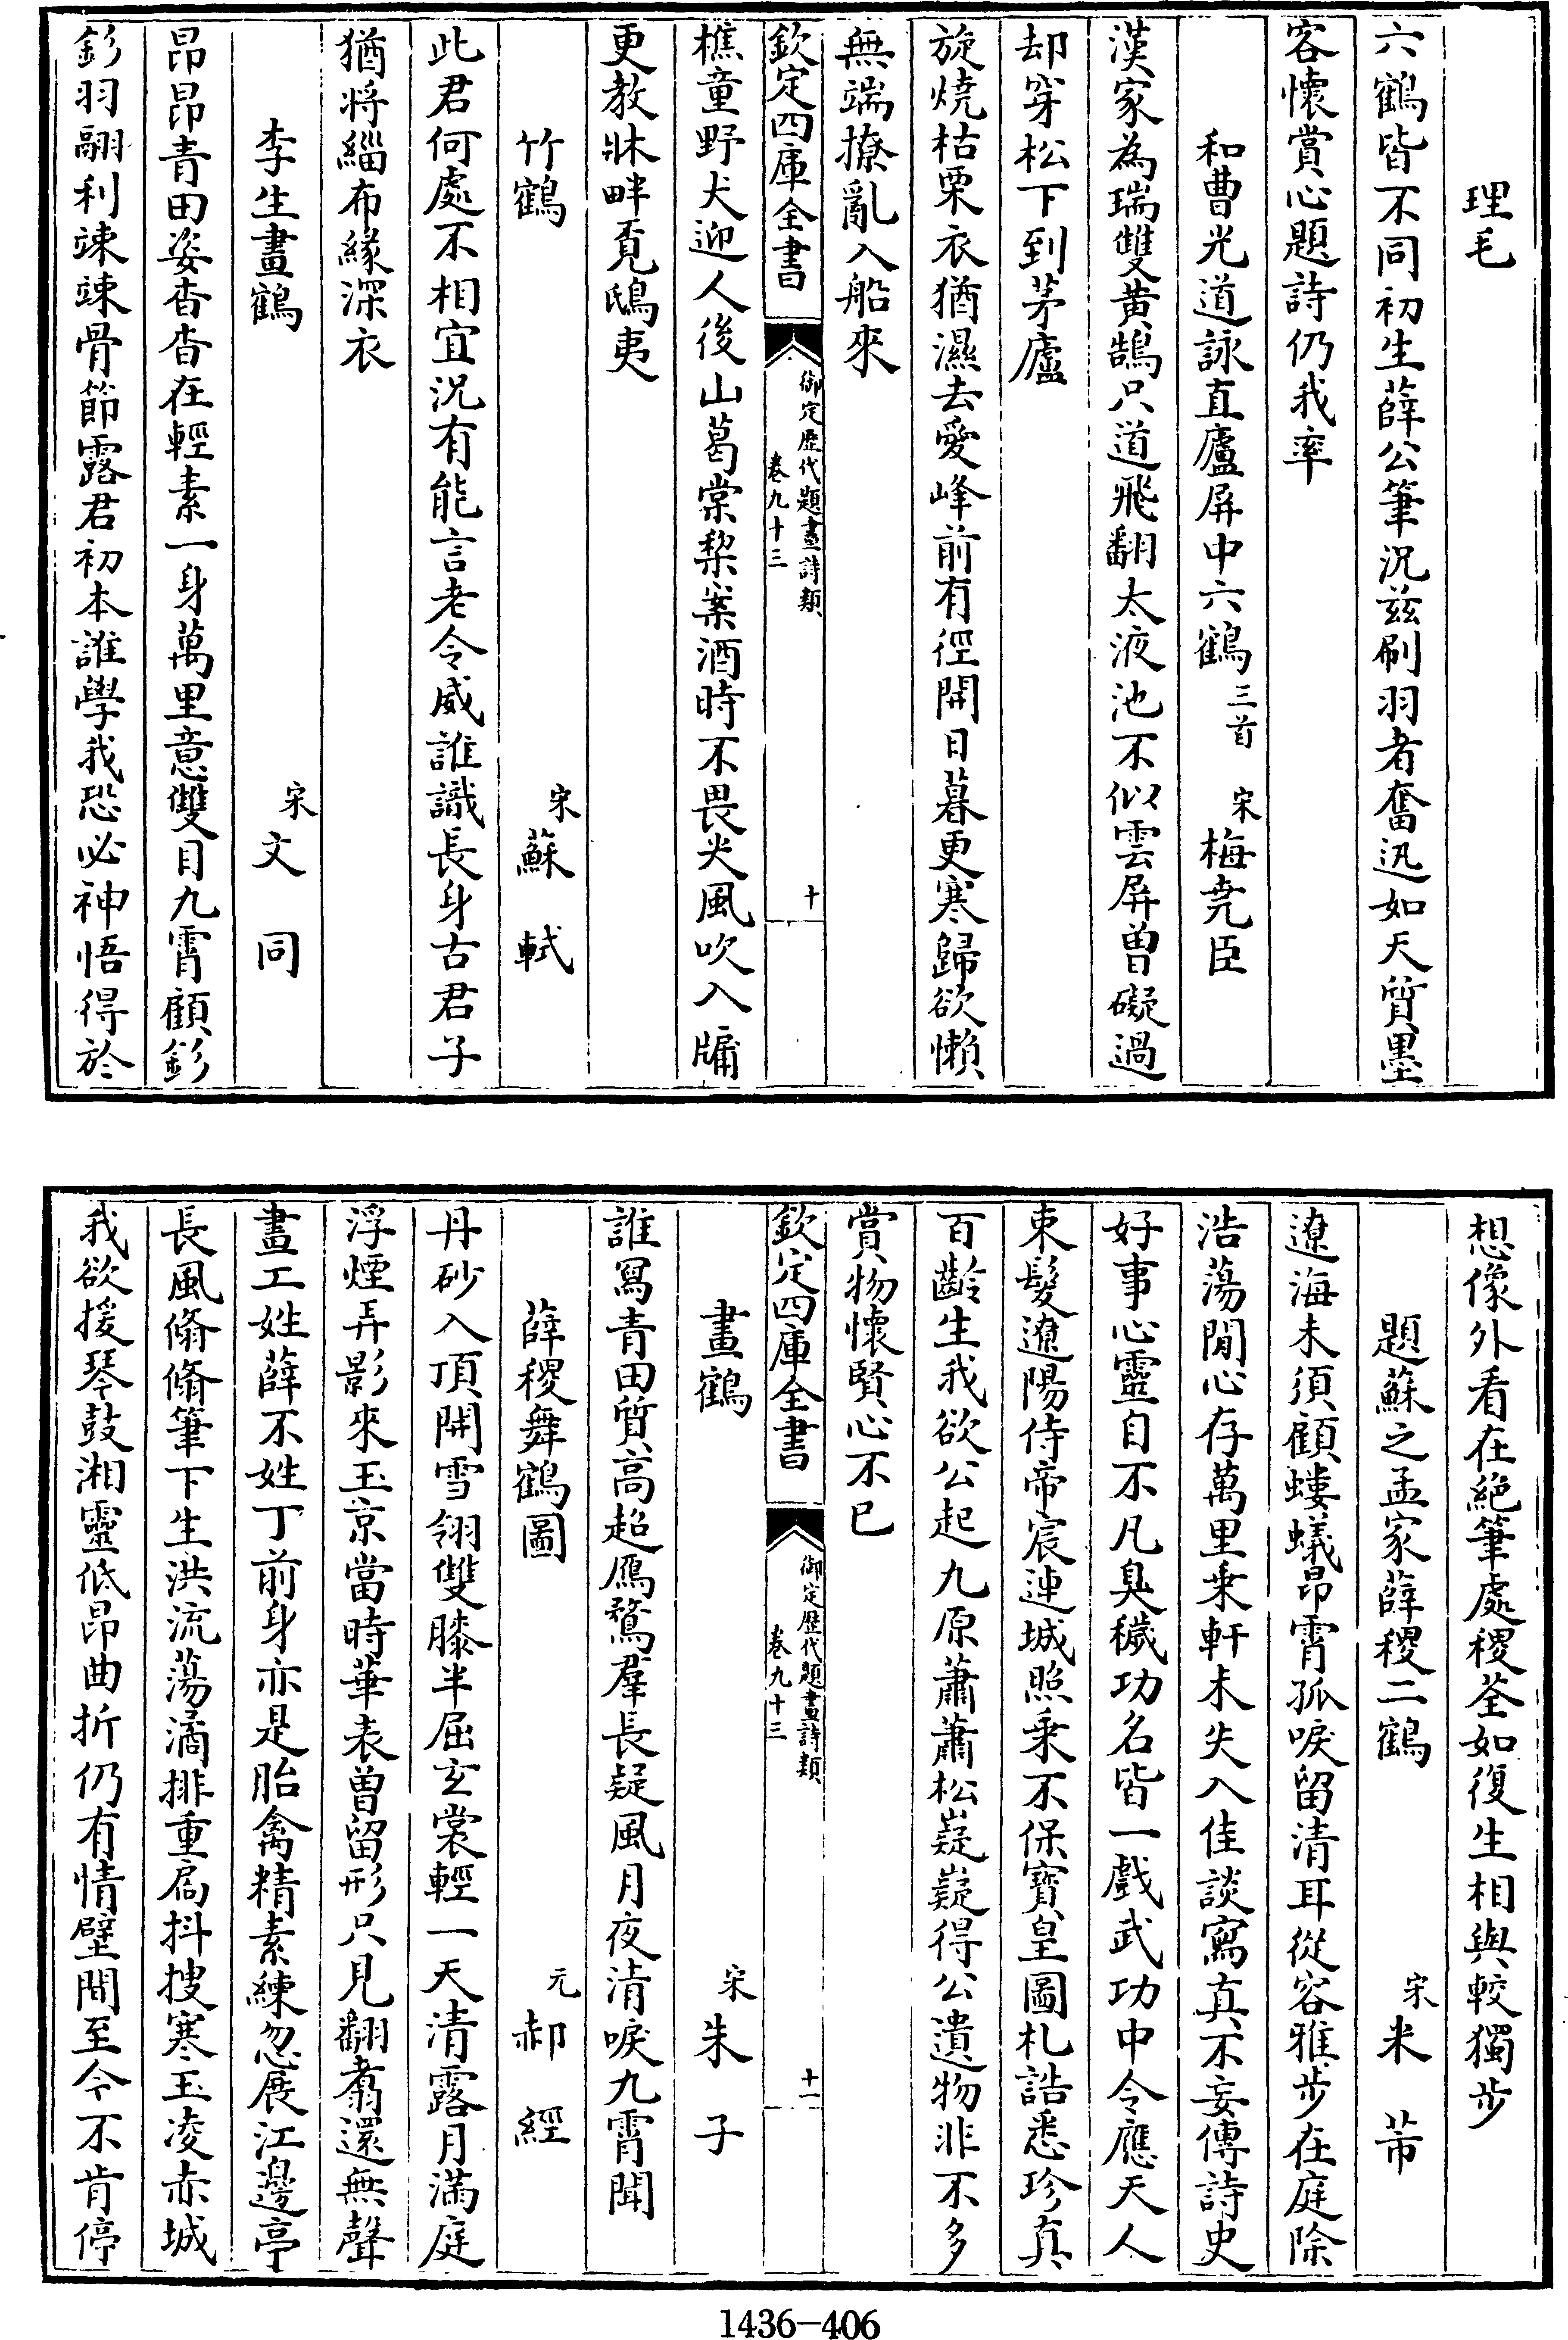 理毛
六鶴皆不同初生薛公筆況兹刷羽者奮迅如天質墨
客懷賞心題詩仍我率
和曹光道詠直廬屏中六鶴三首 宋梅堯臣
漢家為瑞雙黄鵠只道飛翻太液池不似雲屏曽礙過
却穿松下到茅廬
旋燒枯栗衣猶濕去愛峰前有徑開日暮更寒歸欲懶
無端撩亂入船來
欽定四庫全書 御定歴代題畫詩類 卷九十三 十
樵童野犬迎人後山葛棠棃案酒時不畏尖風吹入牖
更教牀畔覓鴟夷
竹鶴 宋蘇軾
此君何處不相宜況有能言老令威誰識長身古君子
猶將緇布緣深衣
李生畫鶴 宋文同
昂昂青田姿杳杳在輕素一身萬里意雙目九霄顧髟
髟羽翮利竦竦骨節露君初本誰學我恐必神悟得於
想像外看在絶筆處稷荃如復生相與較獨步
題蘇之孟家薛稷二鶴 宋米芾
遼海未須顧螻蟻昂霄孤唳留清耳從容雅步在庭除
浩蕩閒心存萬里乗軒未失入佳談寫真不妄傳詩史
好事心靈自不凡臭穢功名皆一戲武功中令應天人
束髮遼陽侍帝宸連城照乗不保寳皇圖札誥悉珍真
百齡生我欲公起九原蕭蕭松嶷嶷得公遺物非不多
賞物懷賢心不已
欽定四庫全書 御定歴代題畫詩類 卷九十三 十一
畫鶴 宋朱子
誰冩青田質高超鴈鶩羣長疑風月夜清唳九霄聞
薛稷舞鶴圖 元郝經
丹砂入頂開雪翎雙膝半屈玄裳輕一天清露月滿庭
浮煙弄影來玉京當時華表曽留形只見翻翥還無聲
畫工姓薛不姓丁前身亦是胎禽精素練忽展江邊亭
長風翛翛筆下生洪流蕩潏排重扃抖擻寒玉凌赤城
我欲援琴鼓湘靈低昂曲折仍有情壁間至今不肯停
1436-406